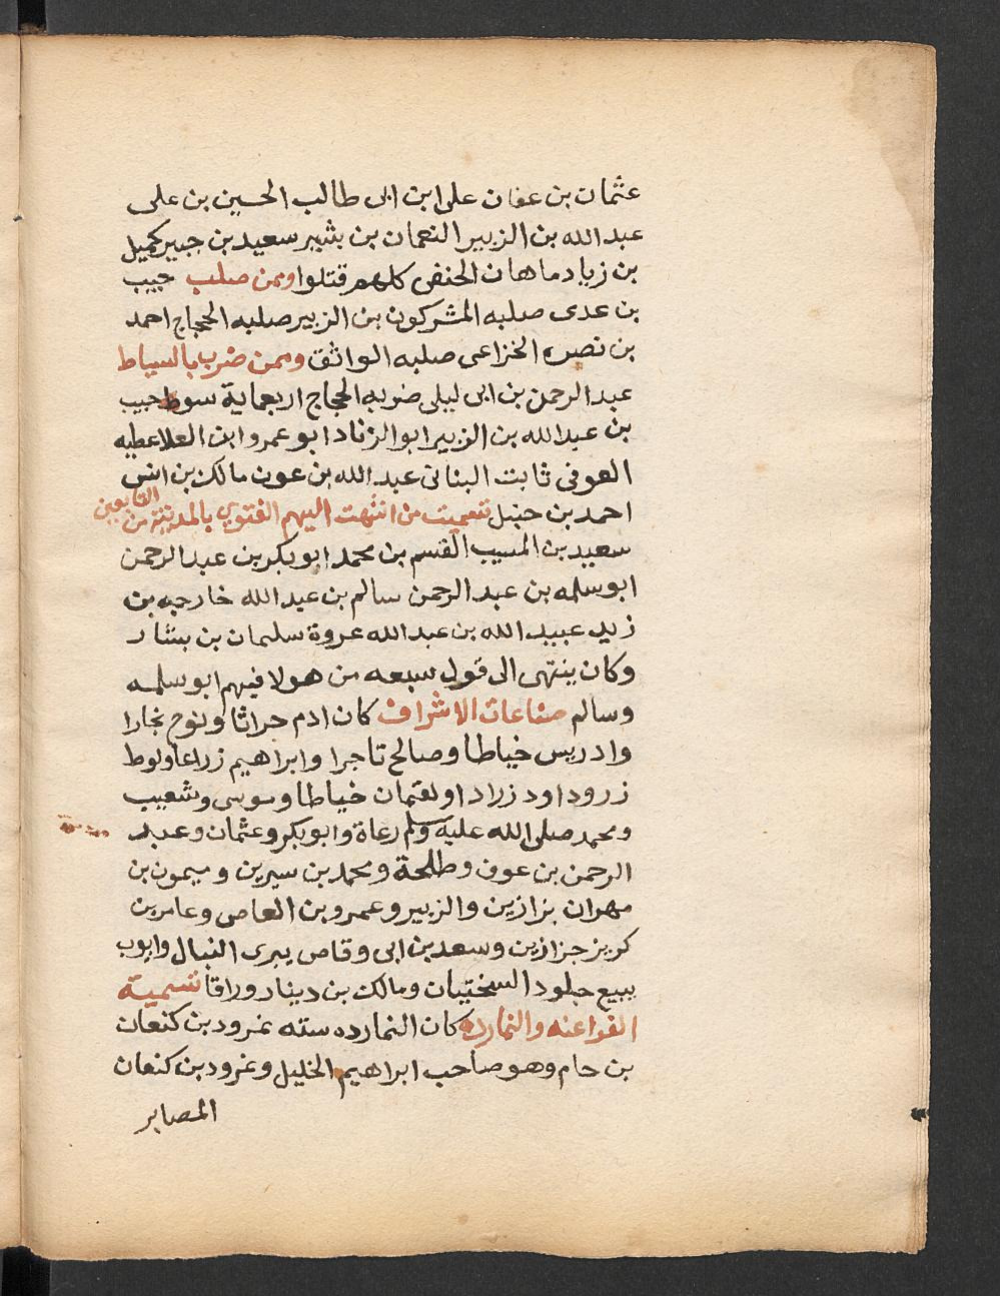 عثمان بن عفان على ابن ابى طالب الحسين بن على
عبد الله بن الزبير النعمان بن بشير سعيد بن جبير كميل
بن زياد ماهان الحنفى كلهم قتلوا وممن صلب حبيب
بن عدى صلبه المشركون بن الزبير صلبه الحجاج احمد
بن نصر الخزاعى صلبه الواثق وممن ضرب بالسياط
عبد الرحمن بن ابى ليلى ضربه الحجاج اربعماية سوط حبيب
بن عبد الله بن الزبير ابو الزناد ابو عمرو ابن العلا عطيه
العوفى ثابت البنانى عبد الله بن عون مالك بن انس
احمد بن حنبل تسميت من انتهت اليهم الفتوي بالمدينة من التابعين
سعيد بن المسيب القسم بن محمد ابو بكر بن عبد الرحمن
ابو سلمه بن عبد الرحمن سالم بن عبد الله خارجه بن
زيد عبيد الله بن عبد الله عروة سليمان بن بشار
وكان ينتهى الى قول سبعه من هولا فيهم ابو سلمه
وسالم صناعات الاشراف كان ادم حراثا ونوح نجارا
وادريس خياطا وصالح تاجرا وابراهيم زراعا ولوط
زرود اود زراد او لقمان خياطا وموسى وشعيب
ومحمد صلى الله عليه وسلم رعاة وابو بكر وعثمان وعبد
الرحمن بن عوف وطلحة ومحمد بن سيرين وميمون بن
مهران بزازين والزبير وعمرو بن العاص وعامر بن
كريز جزازين وسعد بن ابى وقاص يبرى النبال وايوب
يبيع جلود السختيان ومالك بن دينار وراقا تسمية
الفراعنه والنمارده كان النمارده سته نمرود بن كنعان
بن حام وهو صاحب ابراهيم الخليل ونمرود بن كنعان
المصابر